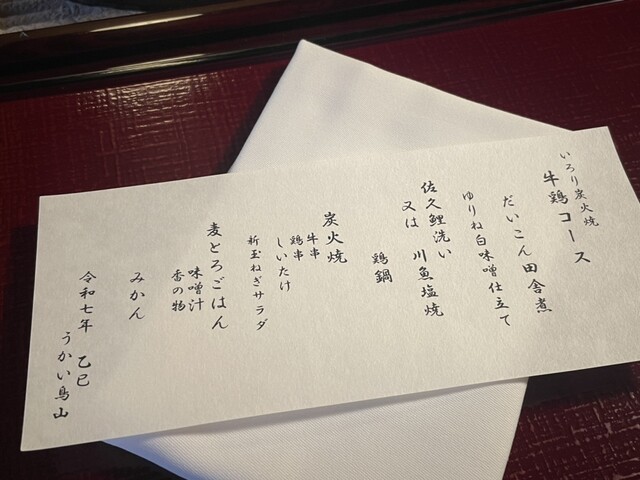 いろり炭火焼
牛鶏コース
だいこん田舎煮
ゆりね白味噌仕立て
佐久鯉洗い
又は 川魚塩焼
鶏鍋
炭火焼
牛串
鶏串
しいたけ
新玉ねぎサラダ
麦とろごはん
味噌汁
香の物
みかん
令和七年 乙巳
うかい鳥山